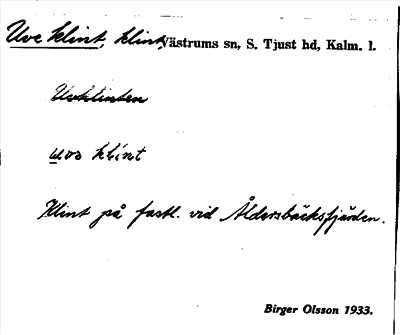 Uve klint, klint, Västrums sn, S. Tjust hd, Kalm. l.
Uvklinten
uvə klínt
Klint på fastl. vid Åldersbäcksfjärden.
Birger Olsson 1933.